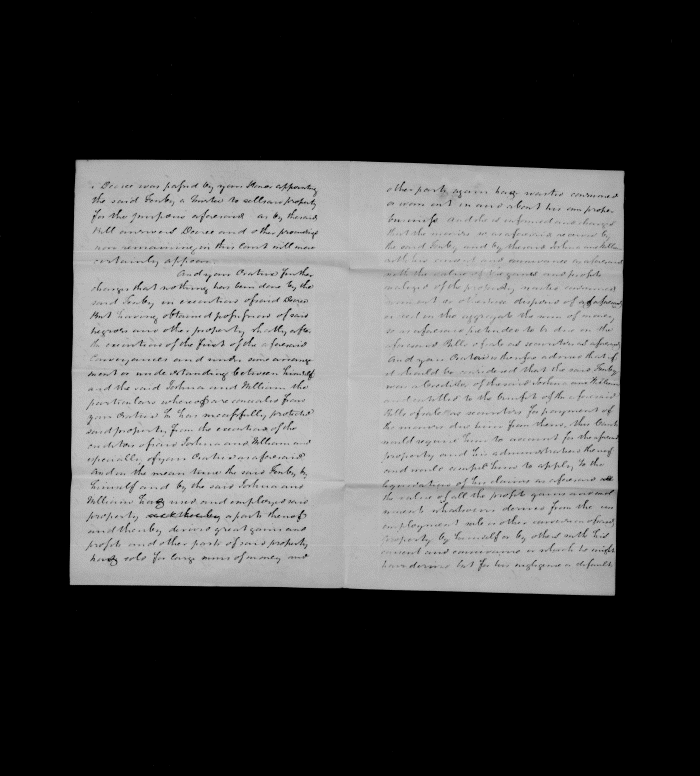 a Decree was passed by your Honor appointing
the said Fenby a Trustee to sell said property
for the purpose aforesaid as by the said
Bill answers Decree and other proceedings
now remaining in this Court will more
certainly appear.
And your Orator further
charges that nothing has been done by the
said Fenby in execution of said Decree
But having obtained possession of said
negroes and other property shortly after
the execution of the first of the aforesaid
Conveyances and under some arrange
ment or understanding between himself
and the said Joshua and William the
particulars whereof are concealed from
your Orator he has successfully protected
said property from the executions of the
creditors of said Joshua and William and
especially of your Orator as aforesaid
And in the mean time the said Fenby by
himself and by the said Joshua and
William has used and employed said
property a part thereof
and thereby derived great gains and
profits and other parts of said property
has sold for large sums of money and
other parts again has wasted consumed
or worn out in and about his own proper
business And he is informed and charges
that the monies so as aforesaid received by
the said Fenby and by the said Joshua and William
with his consent and connivance as aforesaid
with the value of the gains and profits
realized of the property wasted consumed
worn out or otherwise disposed of as aforesaid
exceed in the aggregate the sum of money
so as aforesaid pretended to be due in the
aforesaid Bills of sale as securities as aforesaid
And your Orator is therefore advised that if
it should be considered that the said Fenby
was a creditor of the said Joshua and William
and entitled to the benefit of the aforesaid
Bills of sale as securities for payment of
the monies due him from them, this Court
would require him to account for the aforesaid
property and his administration thereof
and would compel him to apply to the
liquidation of his claims as aforesaid
the value of all the profits gains and
whatsoever derived from the use
employment sale or other conversion of said
property by himself or by others with his
consent and connivance or which he might
have derived but for his negligence or default